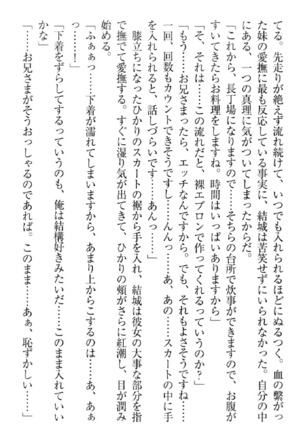 てる。先走りが絶えず流れ続けて、いつでも入れられるほどにぬるつく。血の繋が
った妹の愛撫に最も反応している事実に、結城は苦笑せずにいられなかった。自分の中
にある、一つの真理に気がついてしまったからだ。
「これから、長丁場になりますので……そちらの台所で炊事ができますので、お腹が
すいてきたらお料理をしますね。時間はいっぱいありますから」
「そ、それは……この流れだと、裸エプロンで作ってくれるっていうのか？」
「もう……お兄さまったら、エッチなんですから。でも、それもよさそうですね……
一回、回数もカウントできそうですし……んんっ……あ、あの……スカートの中に手
を入れられると、話しづらいです……あんっ……」
膝立ちになったひかりのスカートの裾から手を入れ、結城は彼女の大事な部分を指
で撫でて愛撫する。すぐに湿り気が出てきて、ひかりの頬がさらに紅潮し、目が潤み
始める。
「ふぁぁっ……下着が濡れてしまいますから、あまり上からこするのは……あ、あぁ
っ……！」
「下着をずらしてするっていうのも、俺は結構好きみたいだ……このまま入れていい
かな」
「……お兄さまがそうおっしゃるのであれば。このまま……あぁ、恥ずかしい……」